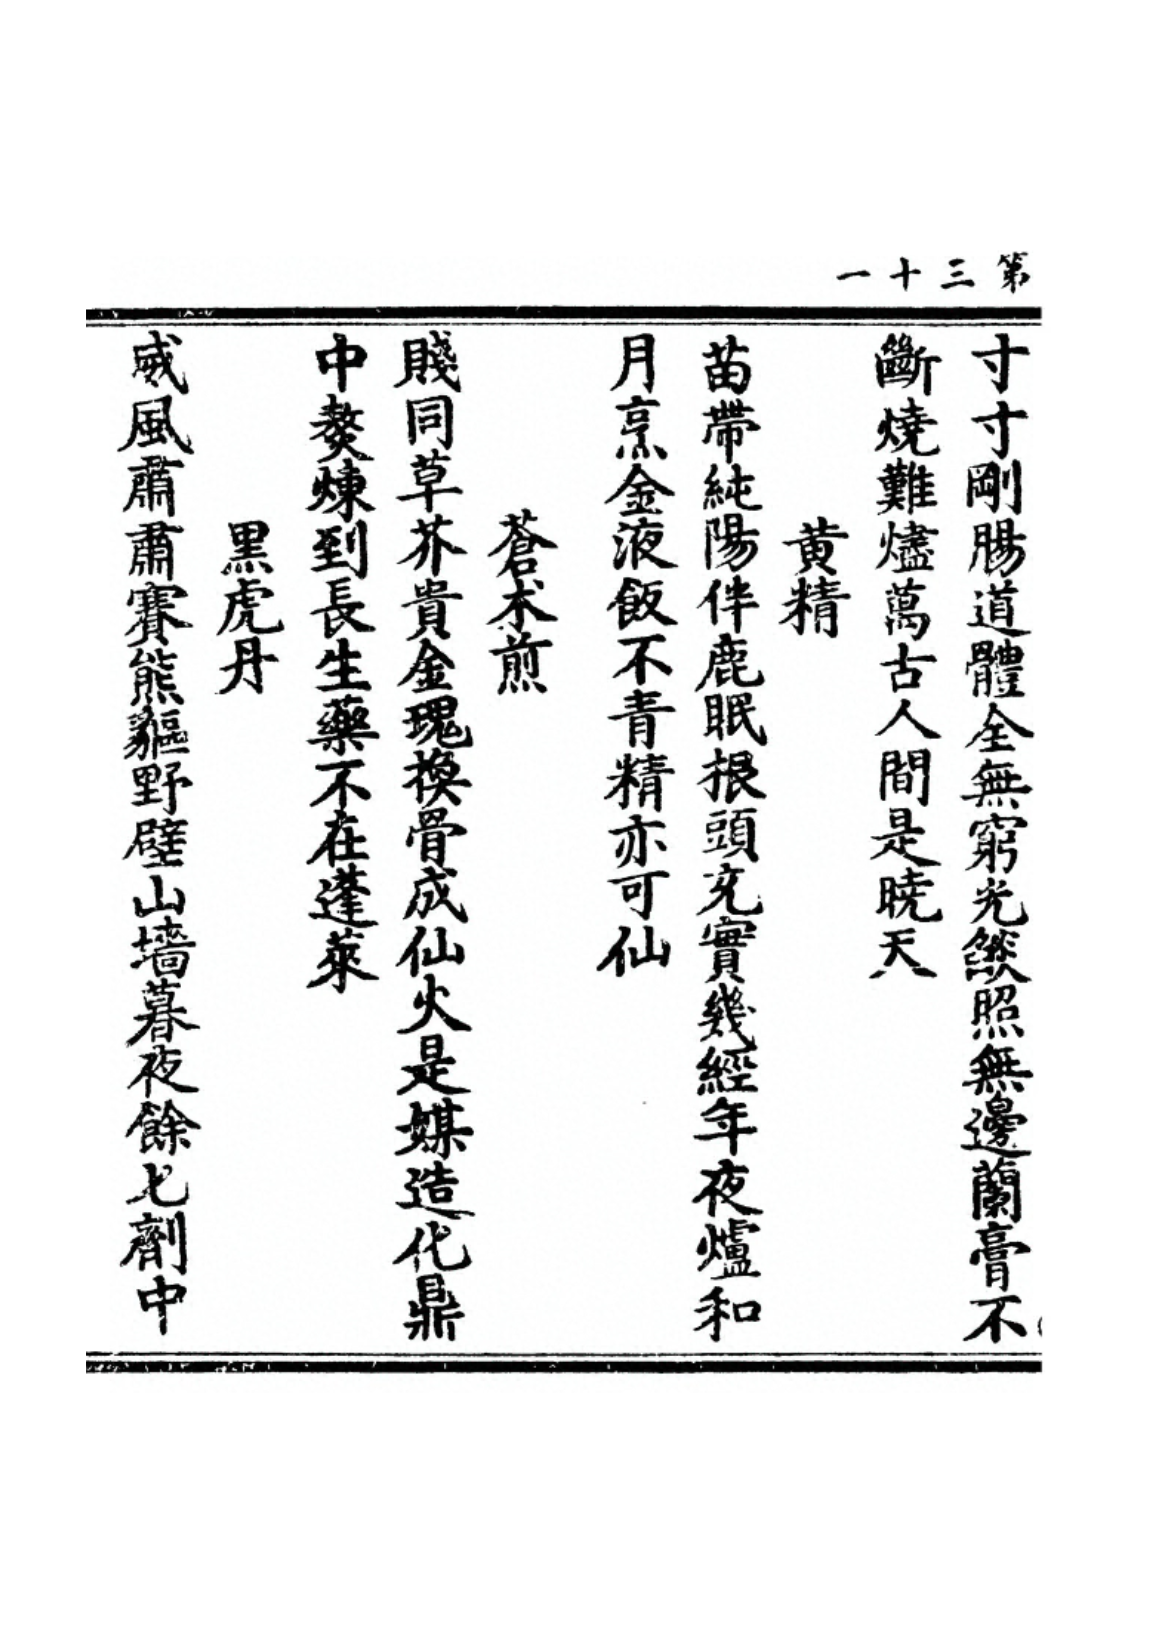 第三十一
寸寸剛腸道體全無窮光燄照無邊蘭膏不
斷燒難燼萬古人間是曉天
黄精
苗帶純陽伴鹿眠根頭充實幾經年夜爐和
月烹金液飯不青精亦可仙
蒼术煎
賤同草芥貴金瑰換骨成仙火是媒造化鼎
中熬煉到長生藥不在蓬萊
黒虎丹
威風肅肅賽熊貙野壁山墻暮夜餘七劑中